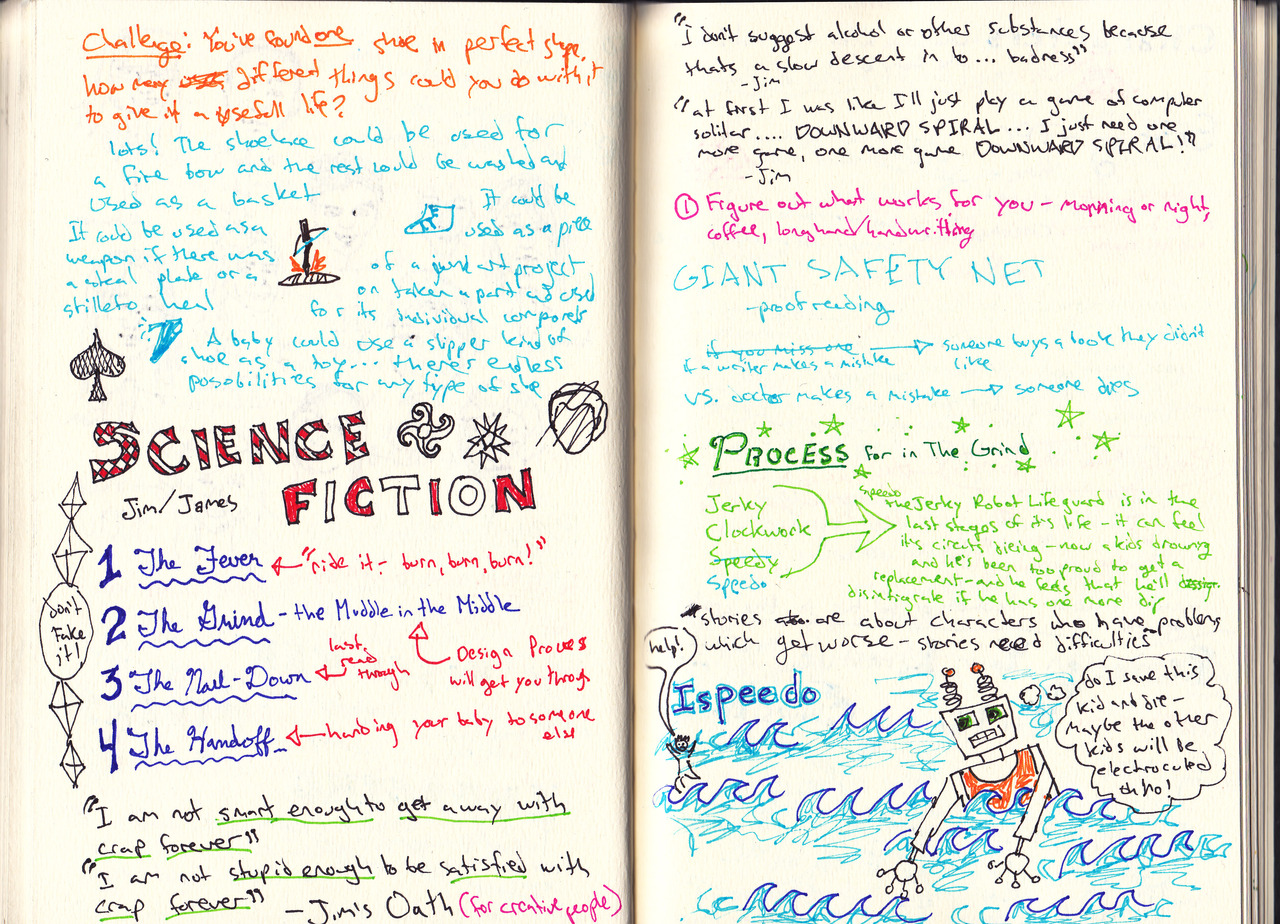 Challenge: You've found one shoe in perfect shape,
how many different things could you do with it
to give it a usefull life?
lots! The shoelace could be used for
a fire bow and the rest could be washed and
used as a basket
It could be used as a
weapon if there was
a steal plate or a
stilleto heal
It could be
used as a piece
of a junk art project
or taken a part and used
for its individual componets
A baby could use a slipper kind of
shoe as a toy... theres endless
posobilities for any type of shoe
SCIENCE
FICTION
Jim/James
don't
Fake
it!
1 The Fever ← "ride it - burn, burn, burn!"
2 The Grind - the Muddle in the Middle
Design Process
will get you through
3 The Nail-Down ← last read through
4 The Handoff ← handing your baby to someone
else
"I am not smart enough to get away with
crap forever"
"I am not stupid enough to be satisfied with
crap forever"
- Jim's Oath (for creative people)
"I don't suggest alcohol or other substances because
thats a slow descent in to... badness"
-Jim
"at first I was like I'll just play a game of computer
solitar.... DOWNWARD SPIRAL... I just need one
more game, one more game DOWNWARD SPIRAL!"
-Jim
① Figure out what works for you - morning or night,
coffee, longhand/handwriting
GIANT SAFETY NET
-proofreading
if you miss one → someone buys a book they didn't
if a writer makes a mistake like
VS. doctor makes a mistake → someone dies
PROCESS for in The Grind
Jerky
Clockwork
Speedy
Speedo
speedo
the Jerky Robot Lifeguard is in the
last stages of it's life - it can feel
it's circuts dieing - now a kids drowning
and he's been too proud to get a
replacement - and he feels that he'll
disintigrate if he has one more dip
"stories are about characters who have problems
which get worse - stories need difficulties"
help!
Ispeedo
do I save this
kid and die -
maybe the other
kids will be
electrocuted
oh no!